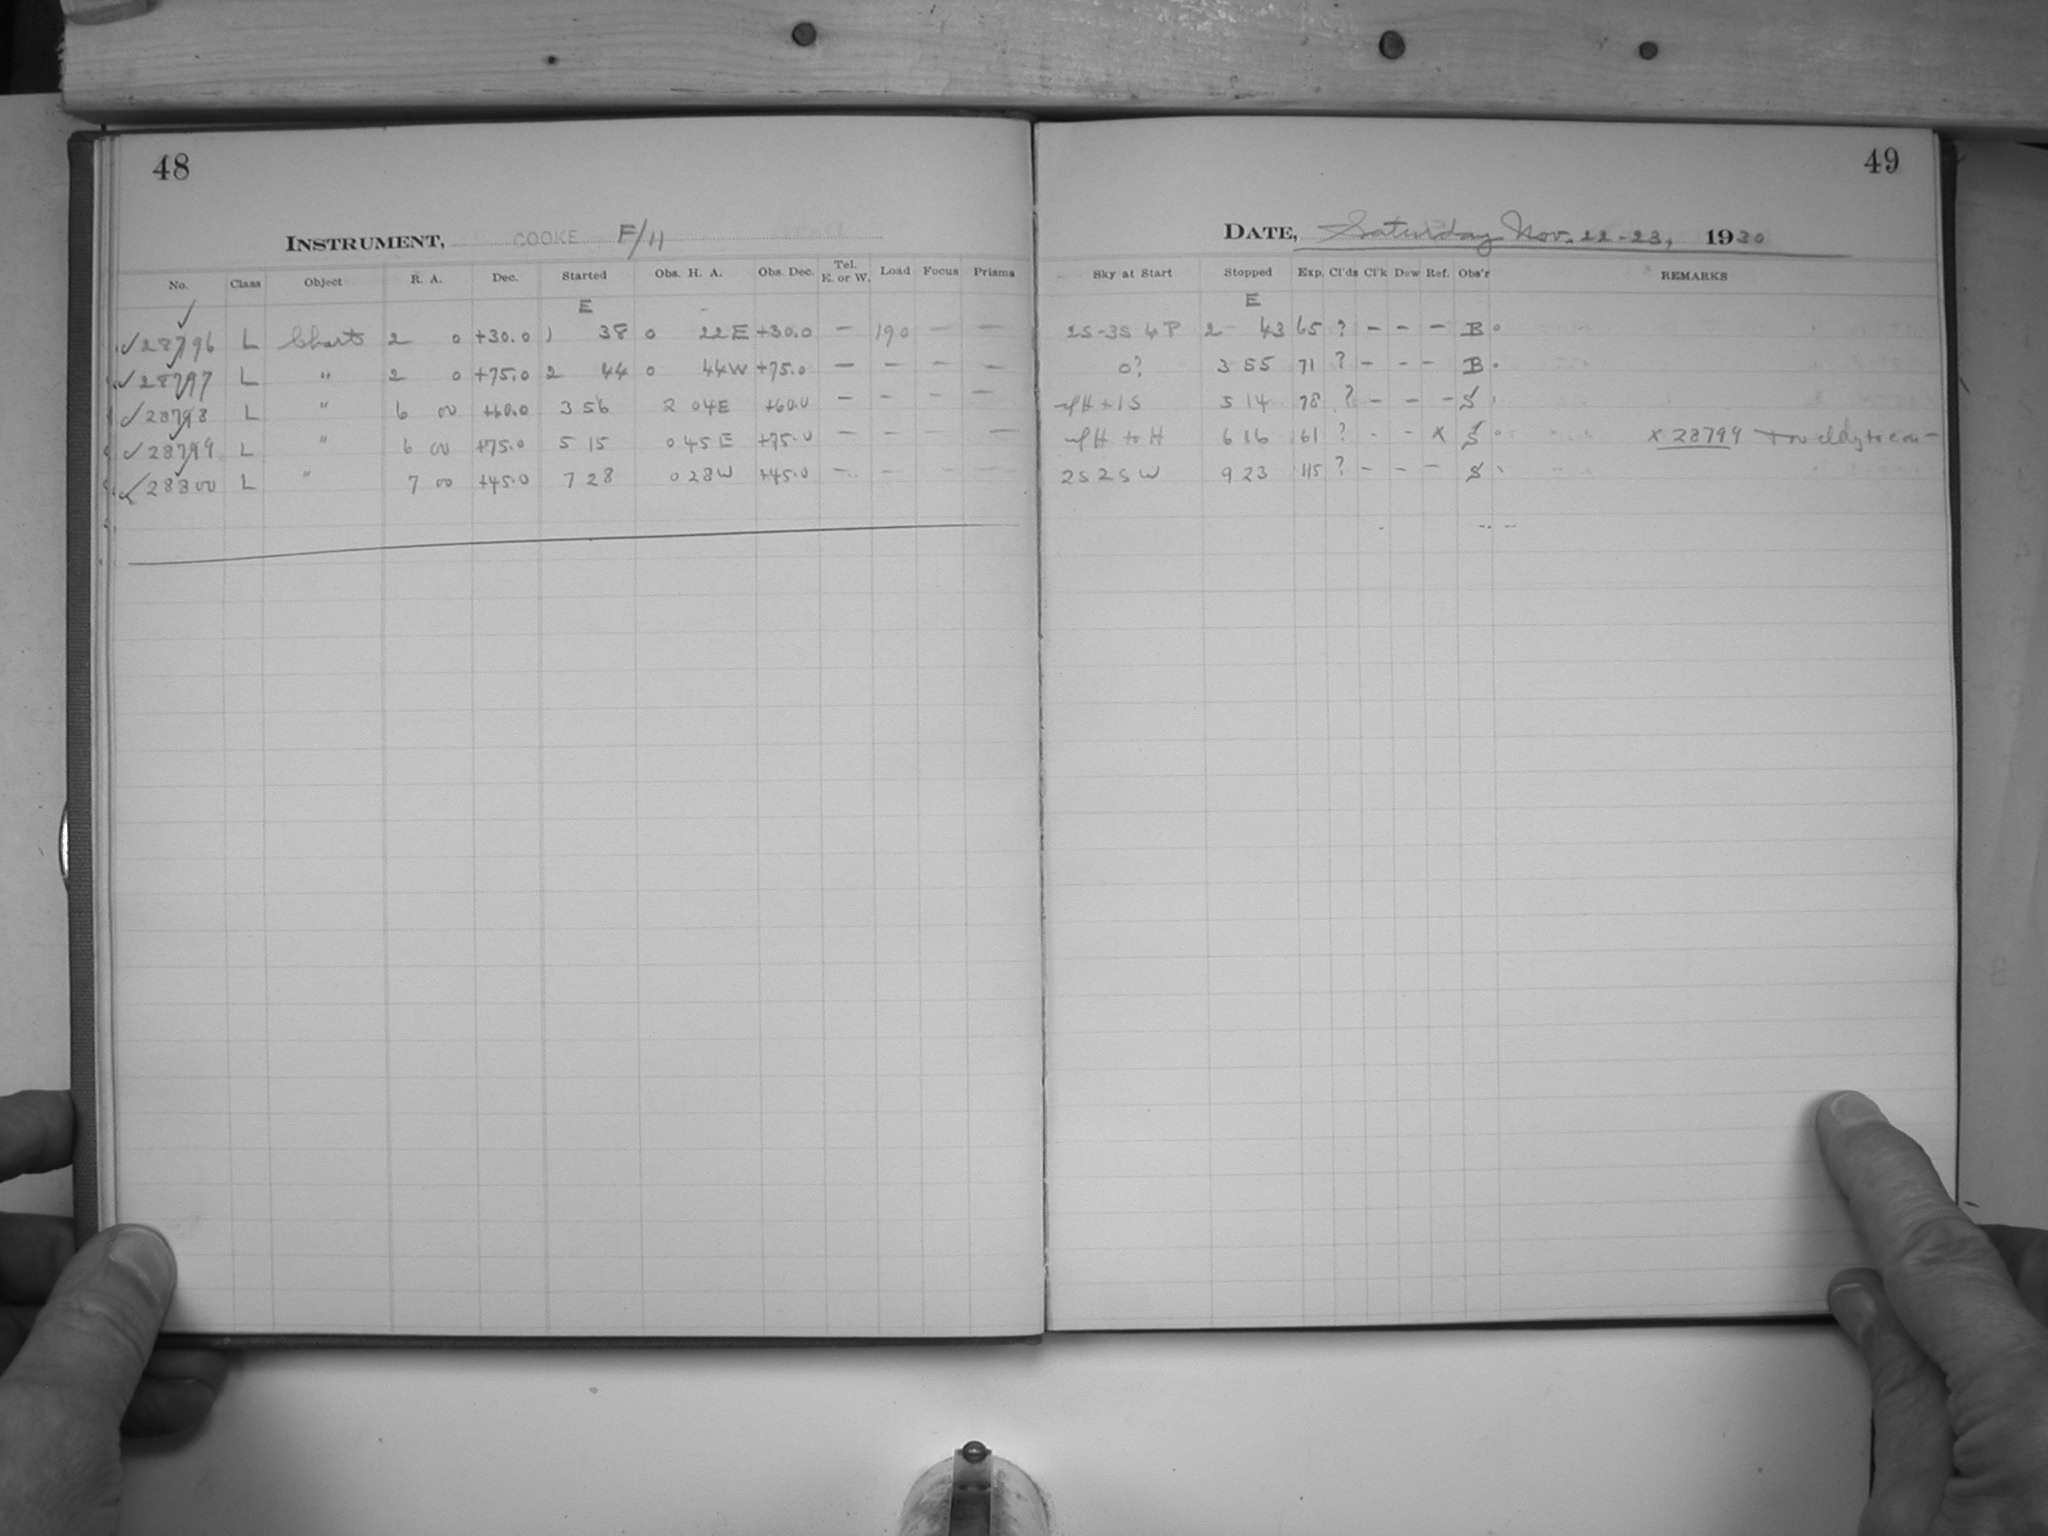 48
INSTRUMENT, COOKE F/H
No. Class Object R. A. Dec. Started Obs. H. A. Obs. Dec. Tel. E. or W. Load Focus Prisms
E
✓28796 L Charts 2 0 +30.0 1 38 0 22E +30.0 — 190 — —
✓28797 L " 2 0 +75.0 2 44 0 44W +75.0 — — — —
✓28798 L " 6 00 +60.0 3 56 2 04E +60.0 — — — —
✓28799 L " 6 00 +75.0 5 15 0 45E +75.0 — — — —
✓28800 L " 7 00 +45.0 7 28 0 28W +45.0 — — — —
49
DATE, Saturday Nov. 22-23, 1930
Sky at Start Stopped Exp. Cl'ds Cl'k Dew Ref. Obs'r REMARKS
E
2S-3S 4P 2 43 65 ? — — — B
0? 3 55 71 ? — — — B
H + 1S 5 14 78 ? — — — S
H to H 6 16 61 ? - - x S x 28799 Too cldy to con—
2S 2S W 9 23 115 ? — — — S